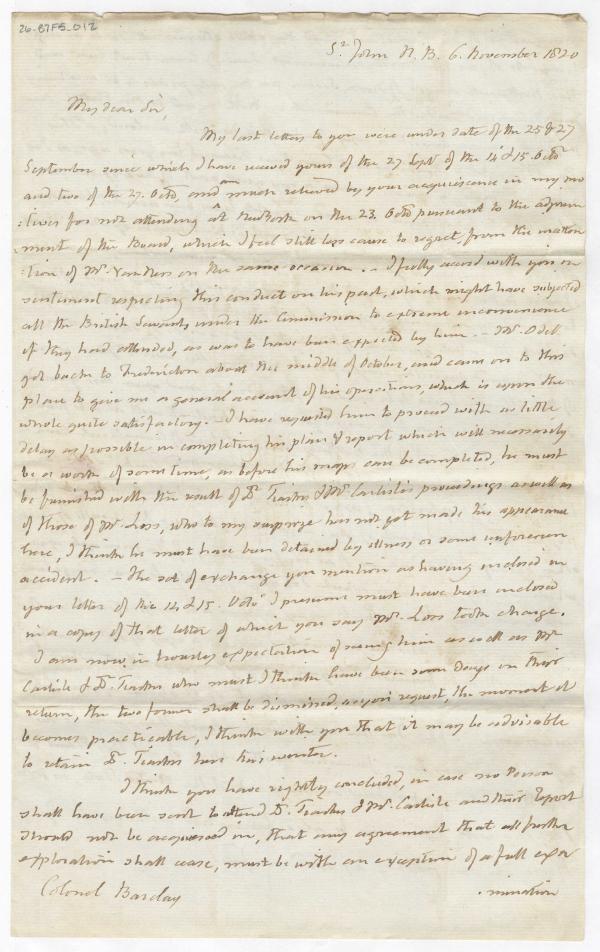 26-87F5_012
St. John N. B. 6. November 1820
My dear Sir,
My last letters to you were under date of the 25 & 27
September since which I have received yours of the 27 Sept. of the 14 & 15. Octo.
and two of the 27. Octo, and much relieved by your acquiescence in my mo
:tives for not attending at New York on the 23. Octo pursuant to the adjourn
ment of the Board, which I feel still less cause to regret, from the inatten
tion of Mr. Van Ness on the same occasion. - I fully accord with you in
sentiment respecting this conduct on his part, which might have subjected
all the British Servants under the Commission to extreme inconvenience
if they had attended, as was to have been expected by him. - Mr. Odell
got back to Fredericton about the middle of October, and came on to this
place to give me a general account of his operations, which is upon the
whole quite satisfactory. - I have requested him to proceed with as little
delay as possible in completing his plan & report which will necessarily
be a work of some time, as before his maps can be completed, he must
be furnished with the result of Dr. Tiarks & Mr. Carlile's proceedings as well as
of those of Mr. Loss, who to my surprize has not yet made his appearance
here, I think he must have been detained by illness or some unforeseen
accident. - The set of exchange you mention as having inclosed in
your letter of the 14 & 15. Octo. I presume must have been inclosed
in a copy of that letter of which you say Mr. Loss took charge.
I am now in hourly expectation of seeing him as well as Mr
Carlile & Dr. Tiarks who must I think have been some Days on their
return, the two former shall be dismissed, as you request, the moment it
becomes practicable, I think with you that it may be advisable
to retain Dr. Tiarks here this winter.
I think you have rightly concluded, in case no Person
shall have been sent to attend Dr. Tiarks & Mr. Carlile and their Report
should not be acquiesced in, that any agreement that all further
exploration shall cease, must be with an exception of a full exa
Colonel Barclay
:mination